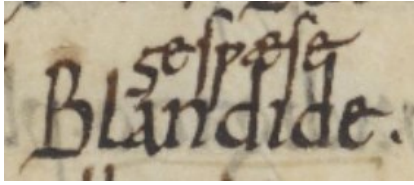 geſƿæſe
Blandide.